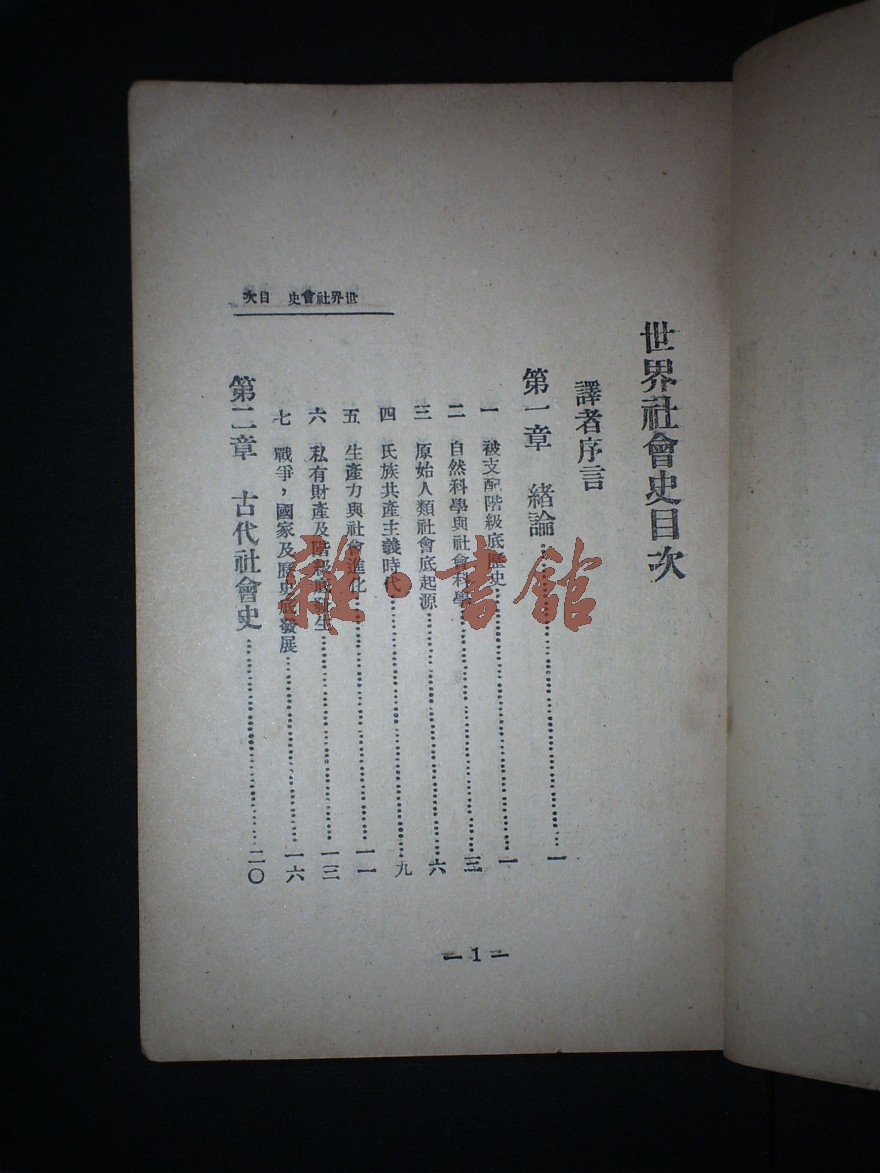 世界社會史目次
譯者序言
第一章 緒論……………………一
一 被支配階級底歷史……………………一
二 自然科學與社會科學……………………三
三 原始人類社會底起源……………………六
四 氏族共產主義時代……………………九
五 生產力與社會進化……………………一一
六 私有財產及階級底發生……………………一三
七 戰爭，國家及歷史底發展……………………一六
第二章 古代社會史……………………二〇
世界社會史 目次
— 1 —
雜·書館